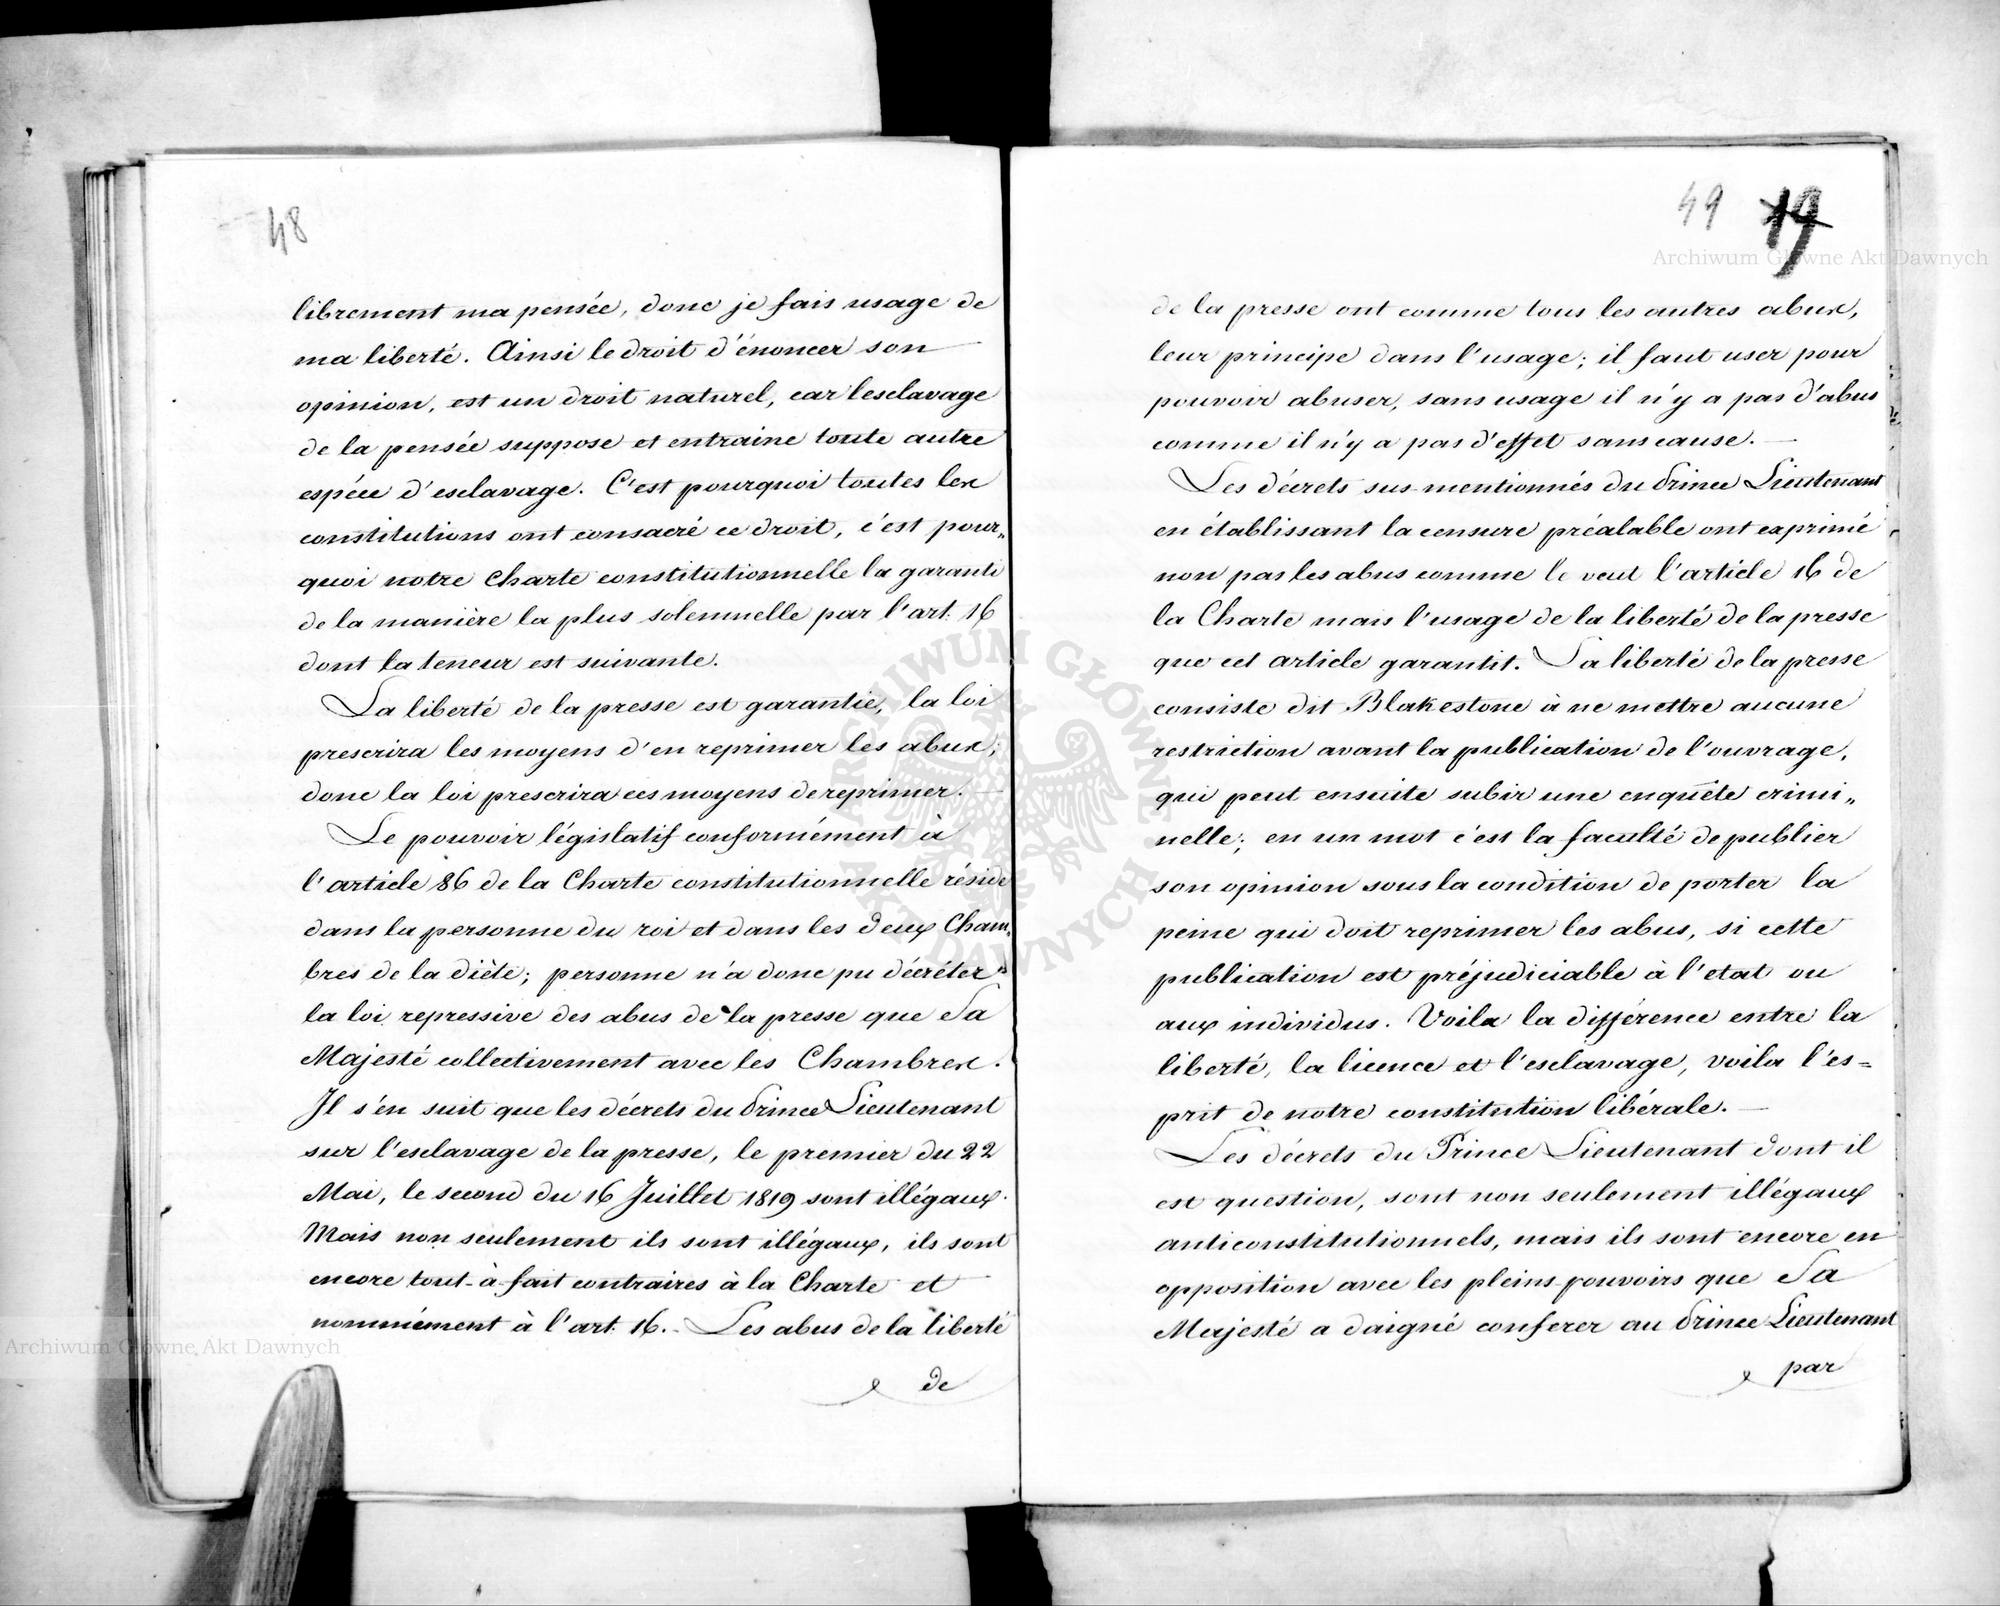 48
librement ma pensée, donc je fais usage de
ma liberté. Ainsi le droit d'énoncer son
opinion, est un droit naturel, car l'esclavage
de la pensée suppose et entraine toute autre
espéce d'esclavage. C'est pourquoi toutes les
constitutions ont consacré ce droit, c'est pour„
quoi notre Charte constitutionnelle la garanti
de la manière la plus solemnelle par l'art. 16
dont la teneur est suivante.
La liberté de la presse est garantie, la loi
prescrira les moyens d'en reprimer les abus;
donc la loi prescrira ces moyens de reprimer.
Le pouvoir législatif conformément à
l'article 86 de la Charte constitutionnelle réside
dans la personne du roi et dans les deux Cham„
bres de la diète; personne n'a donc pu décréter
la loi repressive des abus de la presse que Sa
Majesté collectivement avec les Chambres.
Il s'en suit que les décrets du Prince Lieutenant
sur l'esclavage de la presse, le premier du 22
Mai, le second du 16 Juillet 1819 sont illégaux.
Mais non seulement ils sont illégaux, ils sont
encore tout-à-fait contraires à la Charte et
nommément à l'art. 16. - Les abus de la liberté
de
49 19
de la presse ont comme tous les autres abus,
leur principe dans l'usage; il faut user pour
pouvoir abuser, sans usage il n'y a pas d'abus
comme il n'y a pas d'effet sans cause. —
Les décrets sus-mentionnés du Prince Lieutenant
en établissant la censure préalable ont exprimé
non pas les abus comme le veut l'article 16 de
la Charte mais l'usage de la liberté de la presse
que cet article garantit. La liberté de la presse
consiste dit Blakestone à ne mettre aucune
restriction avant la publication de l'ouvrage,
qui peut ensuite subir une enquête crimi„
nelle; en un mot c'est la faculté de publier
son opinion sous la condition de porter la
peine qui doit reprimer les abus, si cette
publication est préjudiciable à l'etat ou
aux individus. Voila la différence entre la
liberté, la licence et l'esclavage, voila l'es=
prit de notre constitution libérale. —
Les décrets du Prince Lieutenant dont il
est question, sont non seulement illégaux
anticonstitutionnels, mais ils sont encore en
opposition avec les pleins-pouvoirs que Sa
Majesté a daigné conferer au Prince Lieutenant
par
Archiwum Główne Akt Dawnych
Archiwum Główne Akt Dawnych
ARCHIWUM GŁÓWNE AKT DAWNYCH